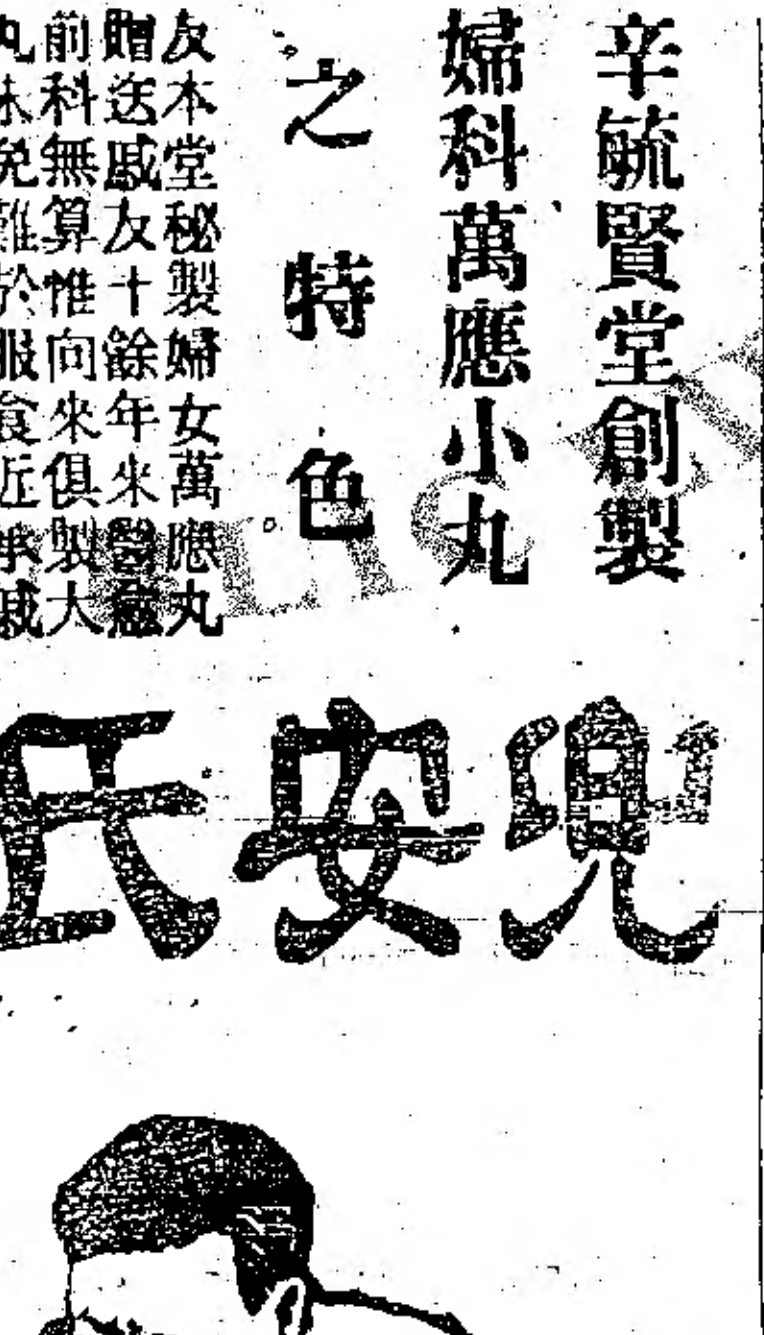 辛毓賢堂創製
婦科萬應小丸
之特色
友本堂秘製婦女萬應丸
贈送戚友十餘年來醫愈
前科無算惟向來俱製大
丸未免難於服食近承戚
兜安氏